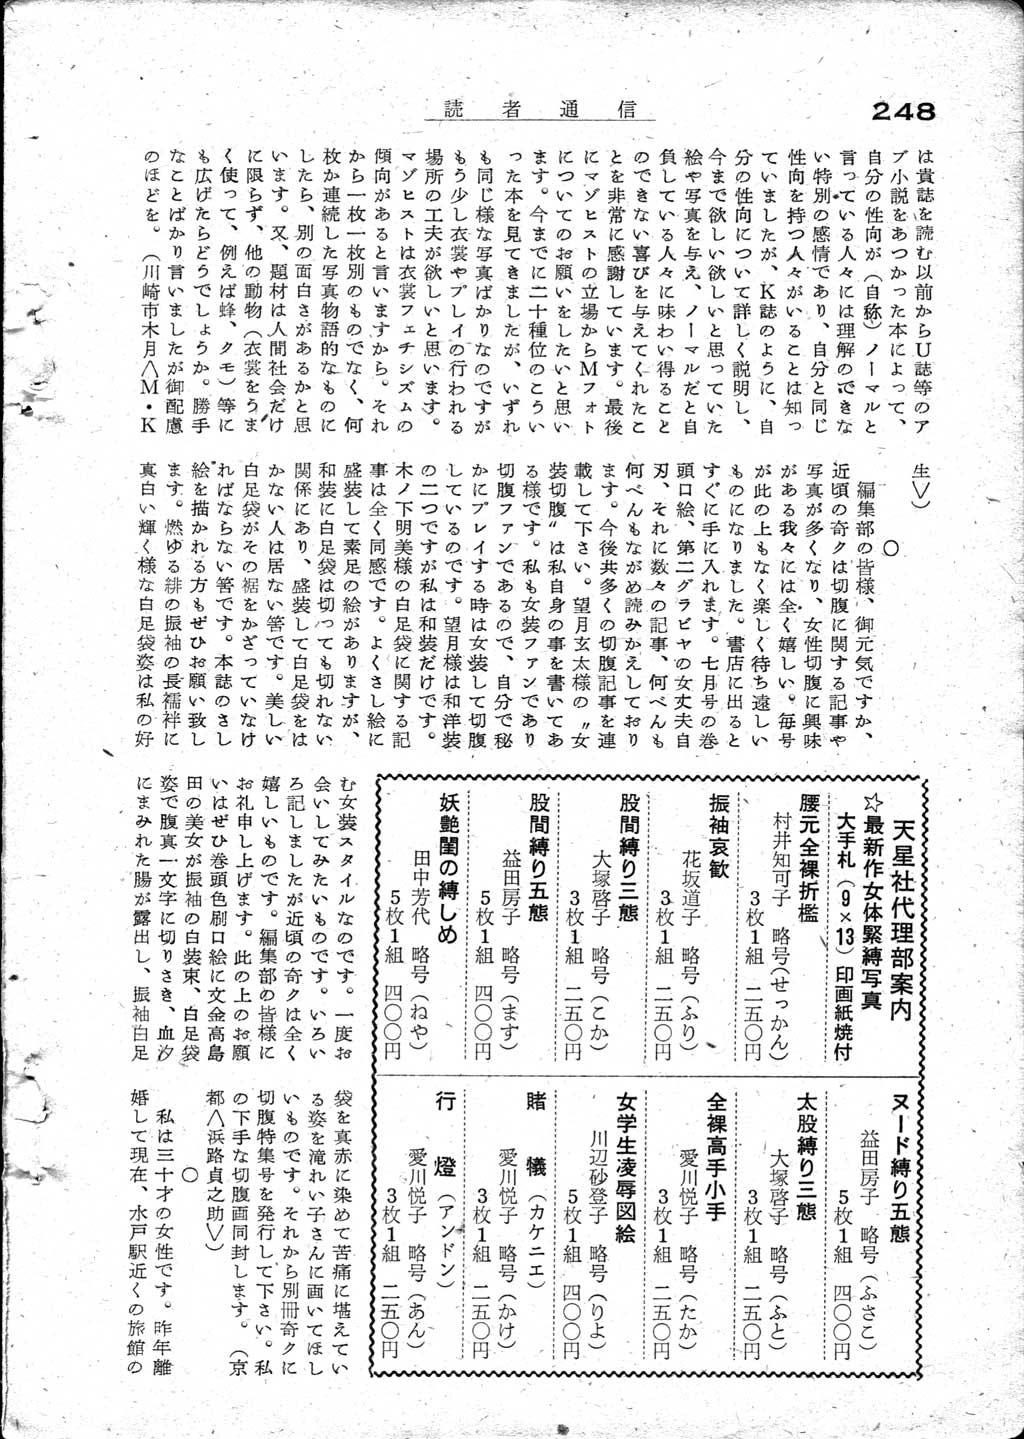 読者通信
248
は貴誌を読む以前からU誌等のア
ブ小説をあつかった本によって、
自分の性向が（自称）ノーマルと
言っている人々には理解のできな
い特別の感情であり、自分と同じ
性向を持つ人々がいることは知っ
ていましたが、K誌のように、自
分の性向について詳しく説明し、
今まで欲しい欲しいと思っていた
絵や写真を与え、ノーマルだと自
負している人々に味わい得ること
のできない喜びを与えてくれたこ
とを非常に感謝しています。最後
にマゾヒストの立場からMフォト
についてのお願いをしたいと思い
ます。今までに二十種位のこうい
った本を見てきましたが、いずれ
も同じ様な写真ばかりなのですが
もう少し衣裳やプレイの行われる
場所の工夫が欲しいと思います。
マゾヒストは衣裳フェチシズムの
傾向があると言いますから。それ
から一枚一枚別のものでなく、何
枚か連続した写真物語的なものに
したら、別の面白さがあるかと思
います。又、題材は人間社会だけ
に限らず、他の動物（衣裳をうま
く使って、例えば蜂、クモ）等に
も広げたらどうでしょうか。勝手
なことばかり言いましたが御配慮
のほどを。（川崎市木月＜M・K
生＞）
○
編集部の皆様、御元気ですか、
近頃の奇クは切腹に関する記事や
写真が多くなり、女性切腹に興味
がある我々には全く嬉しい。毎号
が此の上もなく楽しく待ち遠しい
ものになりました。書店に出ると
すぐに手に入れます。七月号の巻
頭口絵、第二グラビヤの女丈夫自
刃、それに数々の記事、何べんも
何べんもながめ読みかえしており
ます。今後共多くの切腹記事を連
載して下さい。望月玄太様の〝女
装切腹〟は私自身の事を書いてあ
る様です。私も女装ファンであり
切腹ファンであるので、自分で秘
かにプレイする時は女装して切腹
しているのです。望月様は和洋装
の二つですが私は和装だけです。
木ノ下明美様の白足袋に関する記
事は全く同感です。よくさし絵に
盛装して素足の絵がありますが、
和装に白足袋は切っても切れない
関係にあり、盛装して白足袋をは
かない人は居ない筈です。美しい
白足袋がその裾をかざっていなけ
ればならない筈です。本誌のさし
絵を描かれる方もぜひお願い致し
ます。燃ゆる緋の振袖の長襦袢に
真白い輝く様な白足袋姿は私の好
む女装スタイルなのです。一度お
会いしてみたいものです。いろい
ろ記しましたが近頃の奇クは全く
嬉しいものです。編集部の皆様に
お礼申し上げます。此の上のお願
いはぜひ巻頭色刷口絵に文金高島
田の美女が振袖の白装束、白足袋
姿で腹真一文字に切りさき、血汐
にまみれた腸が露出し、振袖白足
袋を真赤に染めて苦痛に堪えてい
る姿を滝れい子さんに画いてほし
いものです。それから別冊奇クに
切腹特集号を発行して下さい。私
の下手な切腹画同封します。（京
都＜浜路貞之助＞）
○
私は三十才の女性です。昨年離
婚して現在、水戸駅近くの旅館の
天星社代理部案内
☆最新作女体緊縛写真
大手札（9×13）印画紙焼付
腰元全裸折檻
村井知可子　略号（せっかん）
3枚1組　二五〇円
振袖哀歓
花坂道子　略号（ふり）
3枚1組　二五〇円
股間縛り三態
大塚啓子　略号（こか）
3枚1組　二五〇円
股間縛り五態
益田房子　略号（ます）
5枚1組　四〇〇円
妖艶閨の縛しめ
田中芳代　略号（ねや）
5枚1組　四〇〇円
ヌード縛り五態
益田房子　略号（ふさこ）
5枚1組　四〇〇円
太股縛り三態
大塚啓子　略号（ふと）
3枚1組　二五〇円
全裸高手小手
愛川悦子　略号（たか）
3枚1組　二五〇円
女学生凌辱図絵
川辺砂登子　略号（りよ）
5枚1組　四〇〇円
賭犠（カケニエ）
愛川悦子　略号（かけ）
3枚1組　二五〇円
行燈（アンドン）
愛川悦子　略号（あん）
3枚1組　二五〇円